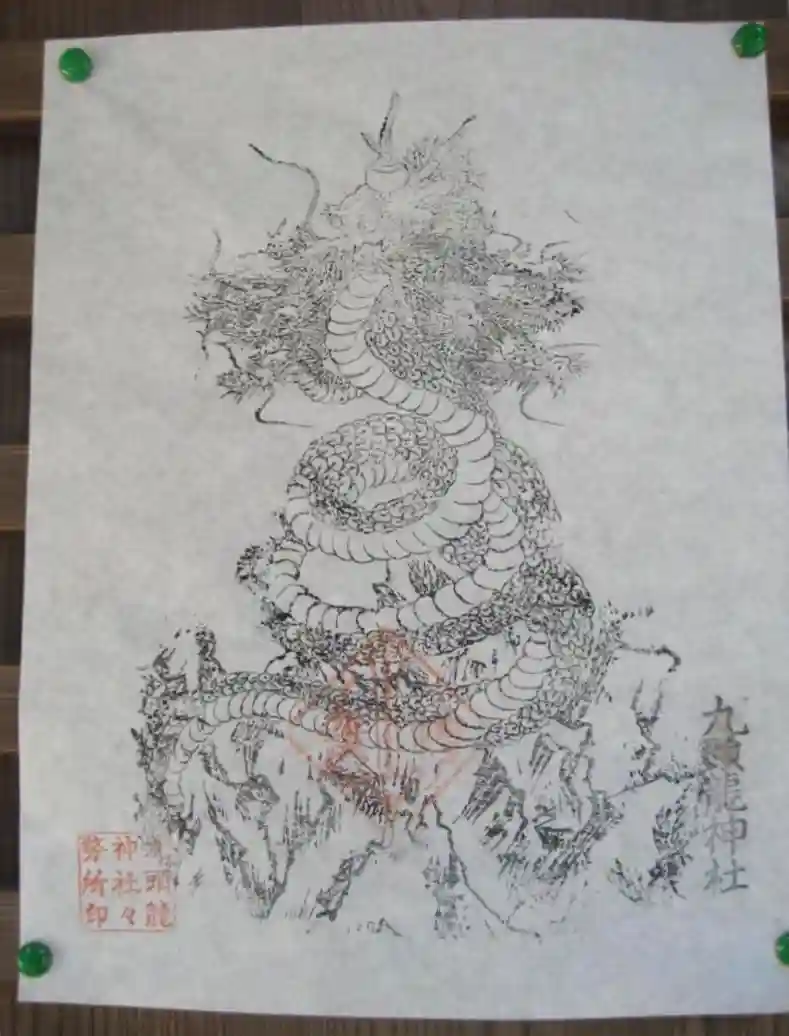 九頭龍神社
九頭龍
神社々
務所印